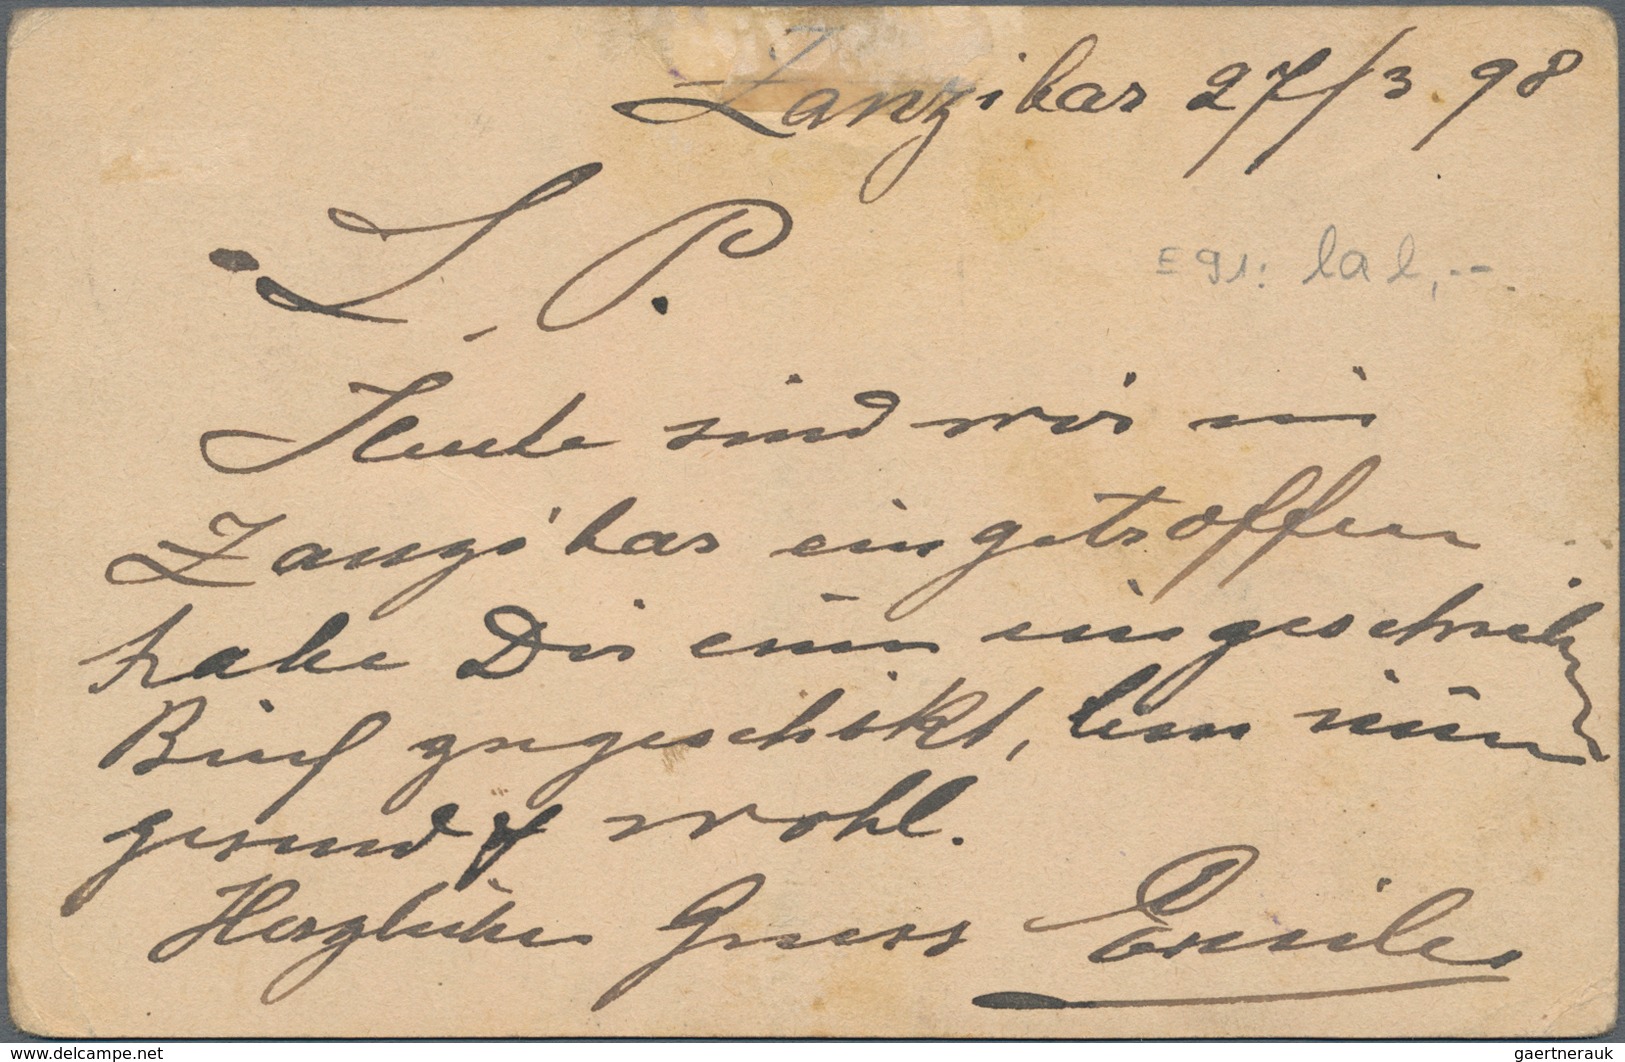 Zanzibar 27/3.98
L. P.
Heute sind wir in
Zanzibar eingetroffen
habe Dir einen eingeschrieb
Brief zugeschikt, bin
gesund & wohl.
Herzlicher Gruss Emile
www.delcampe.net
gaertnerauk